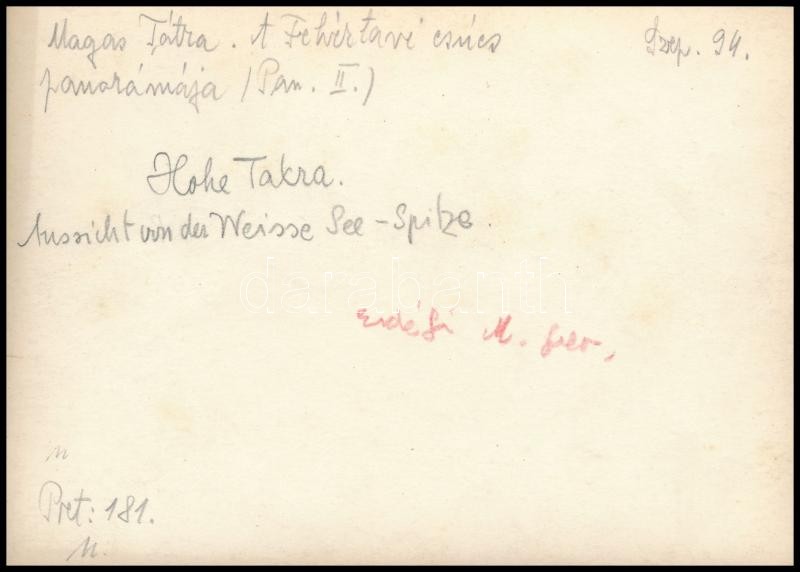 Magas Tátra. A Fehértavi csúcs
Szep. 94.
panorámája (Pan. II.)
Hohe Takra.
Aussicht von der Weisse See-Spitze.
darabanth
Erdéfi M.
n
Pret: 181.
n.